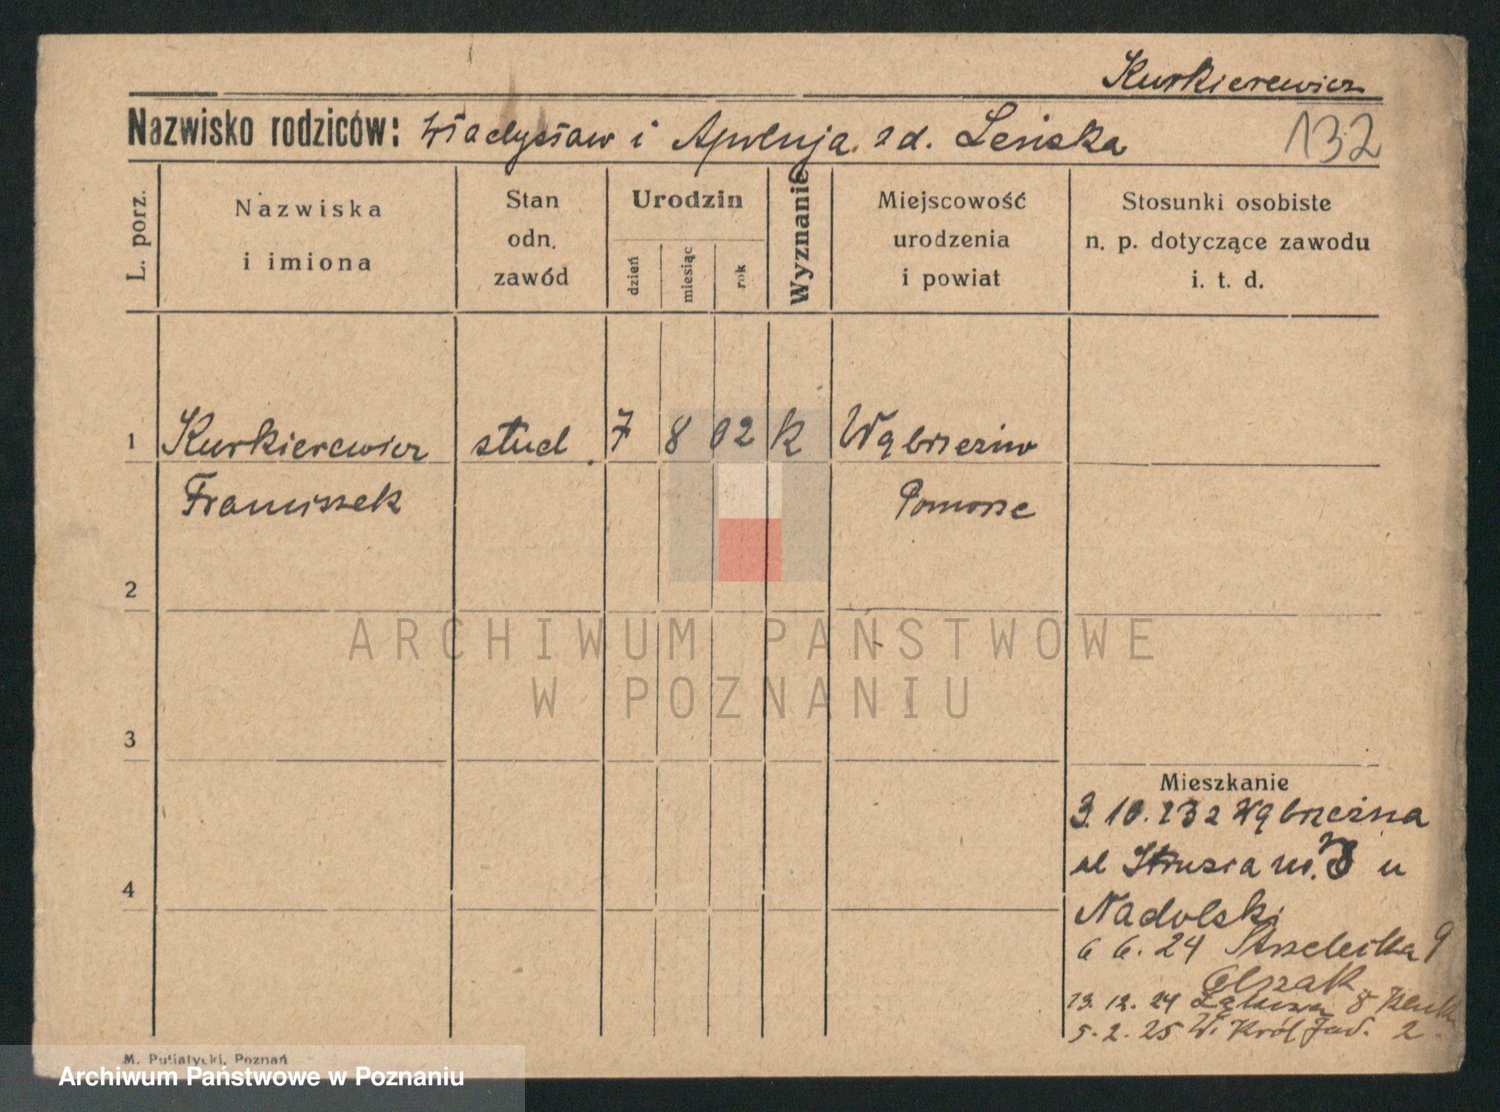 Kurkierewicz
Nazwisko rodziców: Władysław i Apolonja zd. Leńska 132
L. porz.
Nazwiska
i imiona
Stan
odn.
zawód
Urodzin
dzień
miesiąc
rok
Wyznanie
Miejscowość
urodzenia
i powiat
Stosunki osobiste
n. p. dotyczące zawodu
i. t. d.
1 Kurkierewicz stud. 7 8 02 k Wąbrzeźno
Franciszek Pomorze
2
3
4
Mieszkanie
3. 10. 23 z Wąbrzeźna
ul Strusia m. 8 u
Nadolski
6 6. 24 Strzelecka 9
Olszak
13. 12. 24 8
5. 2. 25 W. Król Jad. 2
M. Putiatycki, Poznań
ARCHIWUM PAŃSTWOWE
W POZNANIU
Archiwum Państwowe w Poznaniu